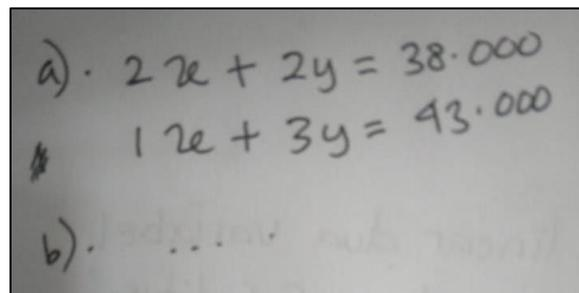 a). 2x + 2y = 38.000
1x + 3y = 43.000
b). ....